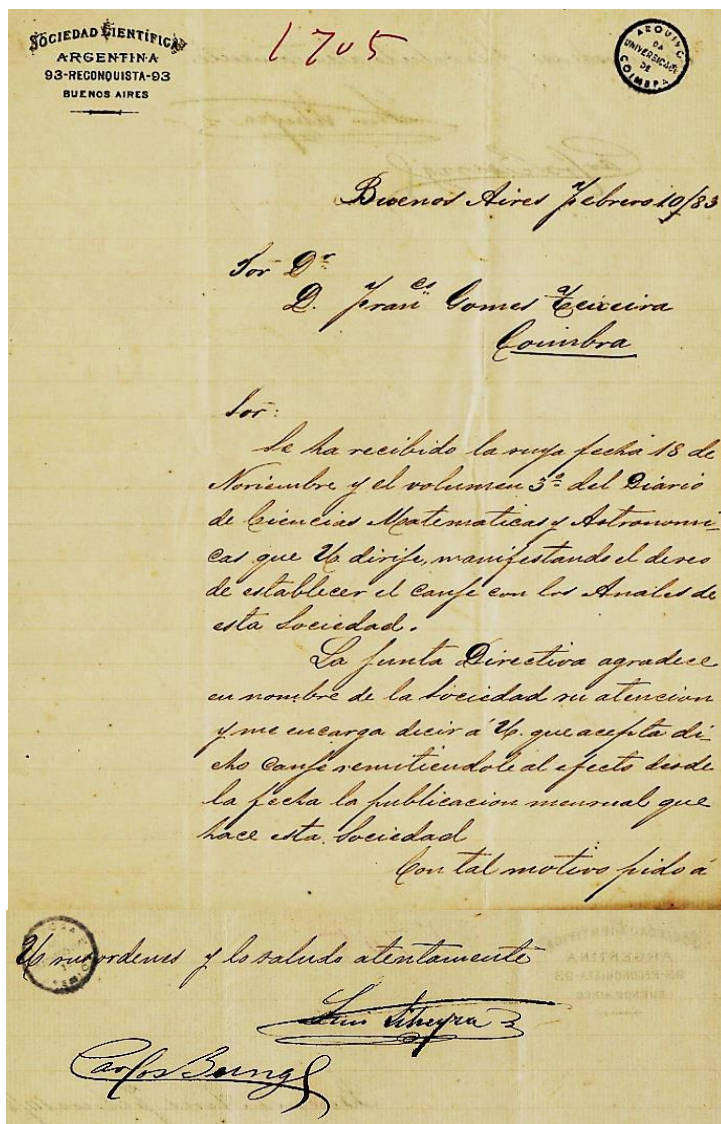 SOCIEDAD CIENTÍFICA
ARGENTINA
93-RECONQUISTA-93
BUENOS AIRES
1705
ARQUIVO
DA
UNIVERSIDADE
DE
COIMBRA
Buenos Aires Febrero 10/83
Sor Dr
D. Francco Gomes Teixeira
Coimbra
Sor:
Se ha recibido la suya fecha 18 de
Noviembre y el volumen 3º del Diario
de Ciencias Matematicas y Astronomi-
cas que U. dirije, manifestando el deseo
de establecer el canje con los Anales de
esta Sociedad.
La Junta Directiva agradece
en nombre de la Sociedad su atencion
y me encarga decir á U. que acepta di-
cho canje remitiendole al efecto desde
la fecha la publicacion mensual que
hace esta Sociedad
Con tal motivo pido á
U. sus ordenes y lo saludo atentamente
Luis
Carlos Bunge